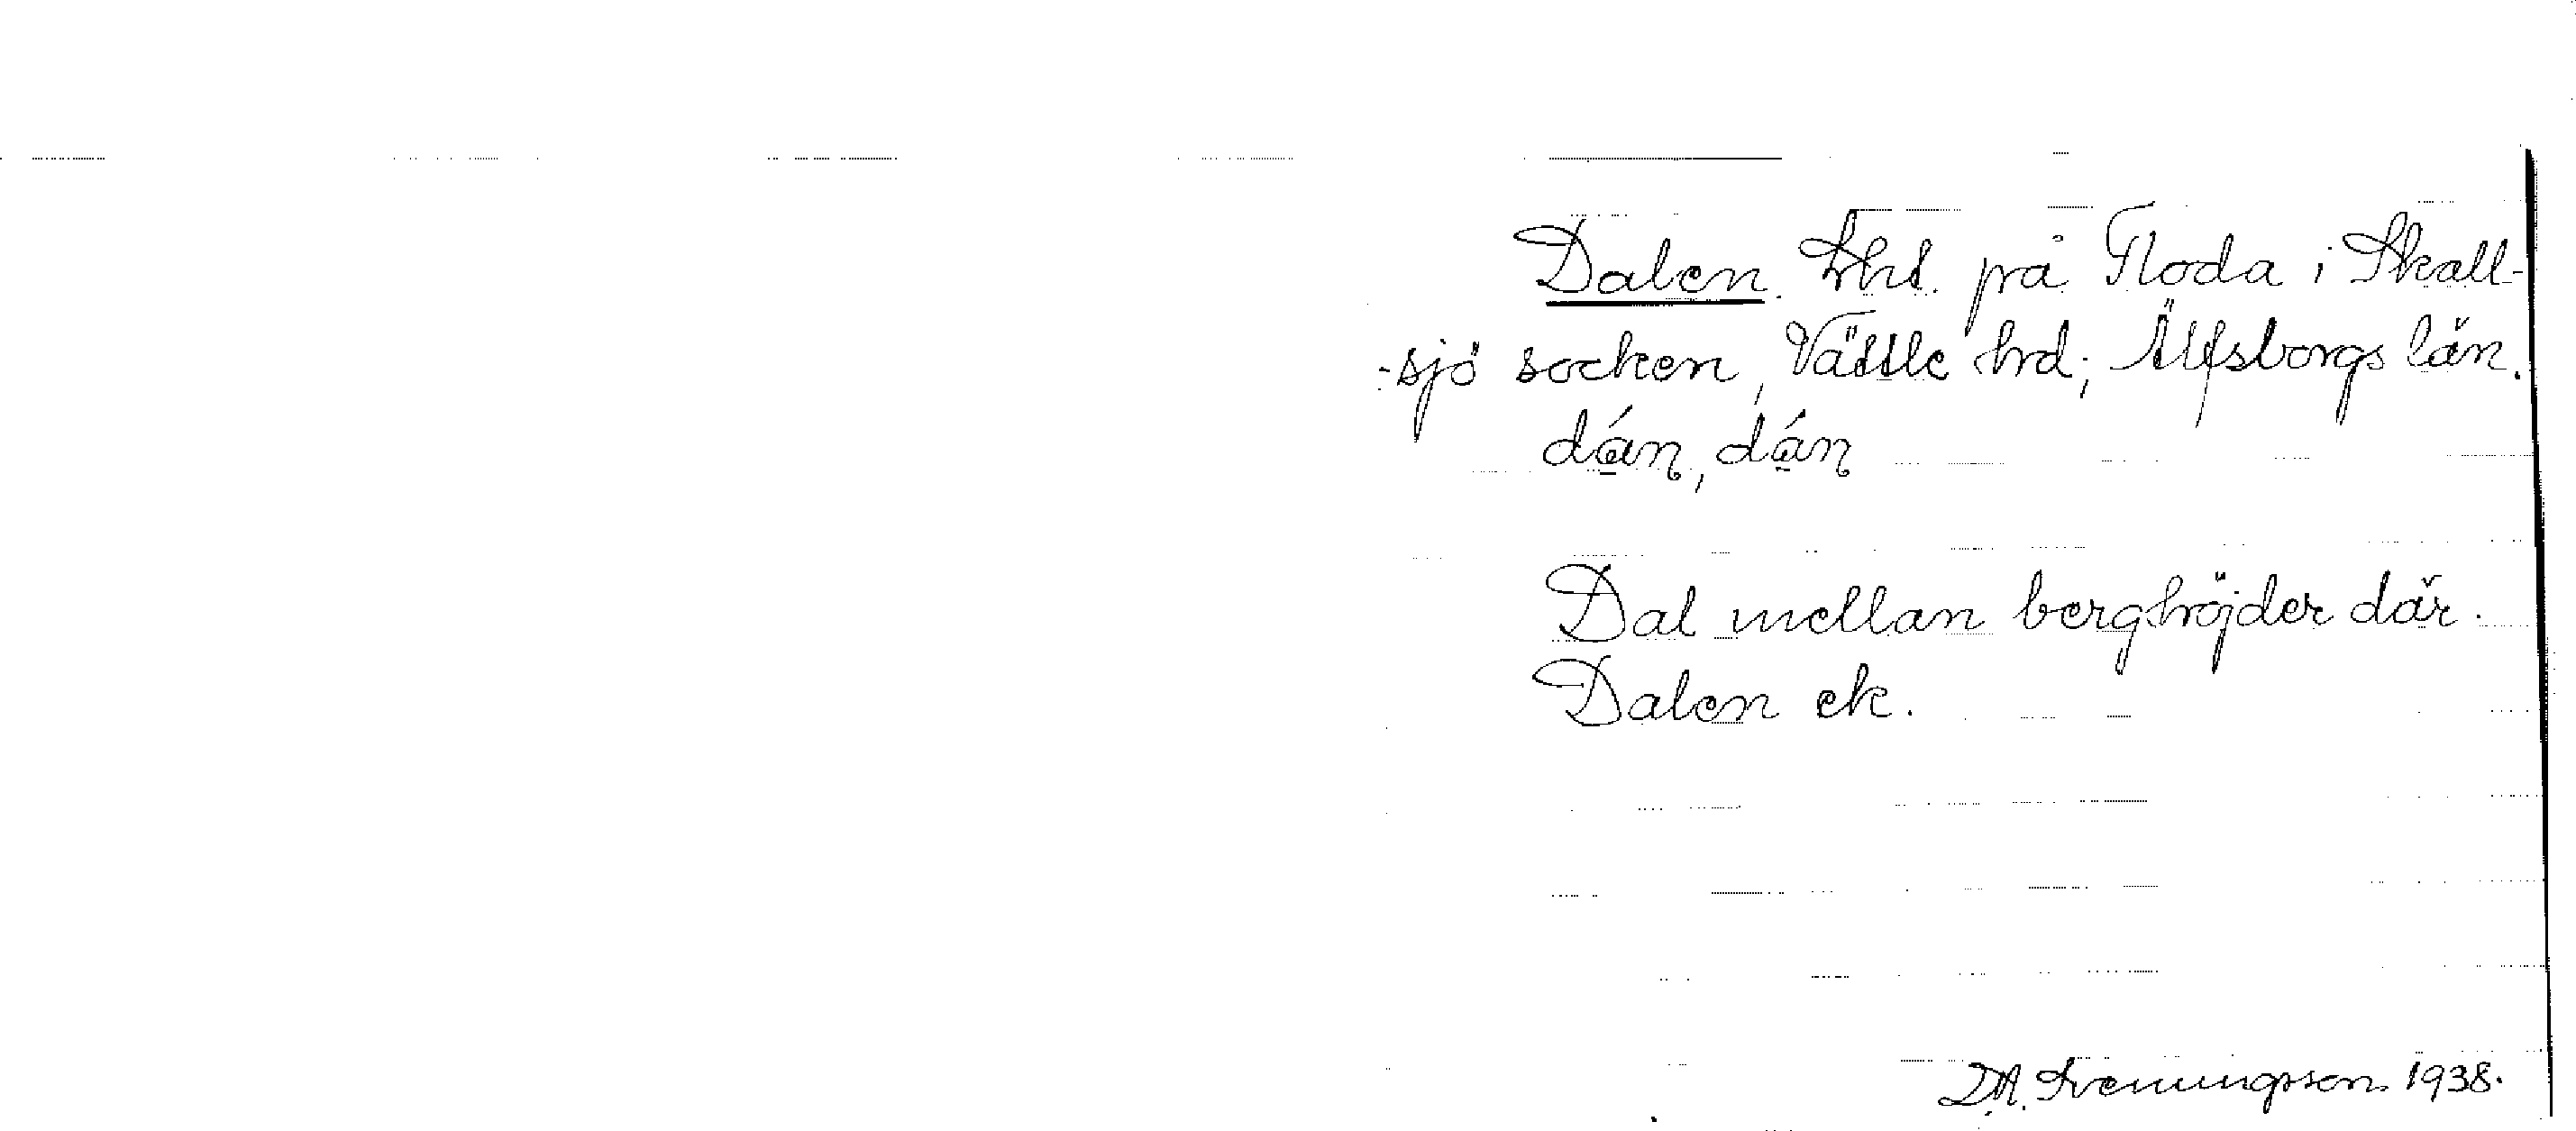 Dalen. Lht. på Floda i Skall-
-sjö socken, Vättle hrd; Älfsborgs län.
dán, dán
Dal mellan berghöjder där.
Dalen ek.
D.A. Svenningsson 1938.